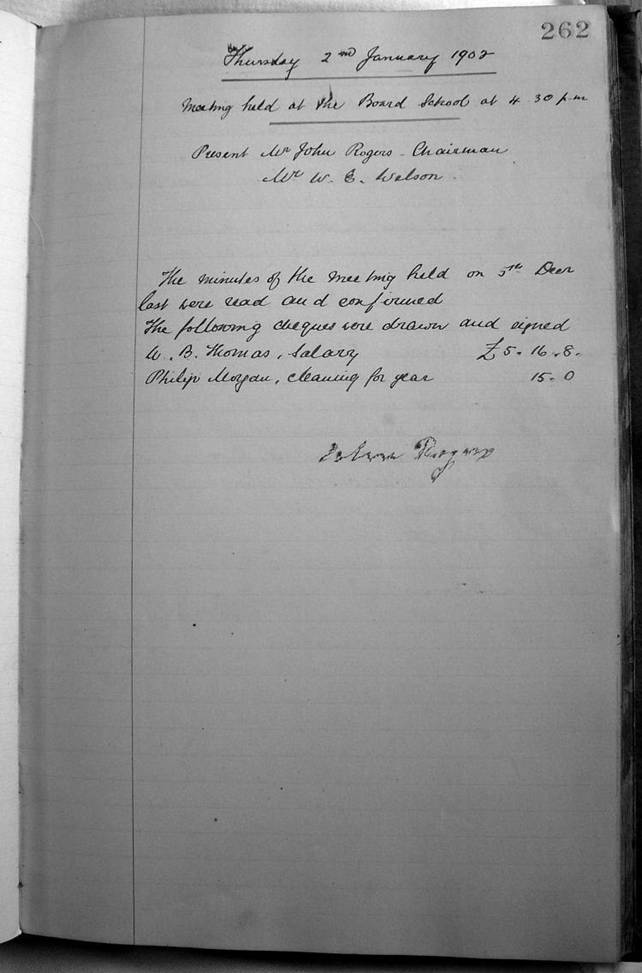 262
Thursday 2nd January 1902
Meeting held at the Board School at 4.30 p.m
Present Mr John Rogers - Chairman
Mr W. E. Welson.
The minutes of the meeting held on 5th Decr
last were read and confirmed
The following cheques were drawn and signed
W. B. Thomas, Salary £5. 16. 8.
Philip Morgan, cleaning for year 15. 0
John Rogers